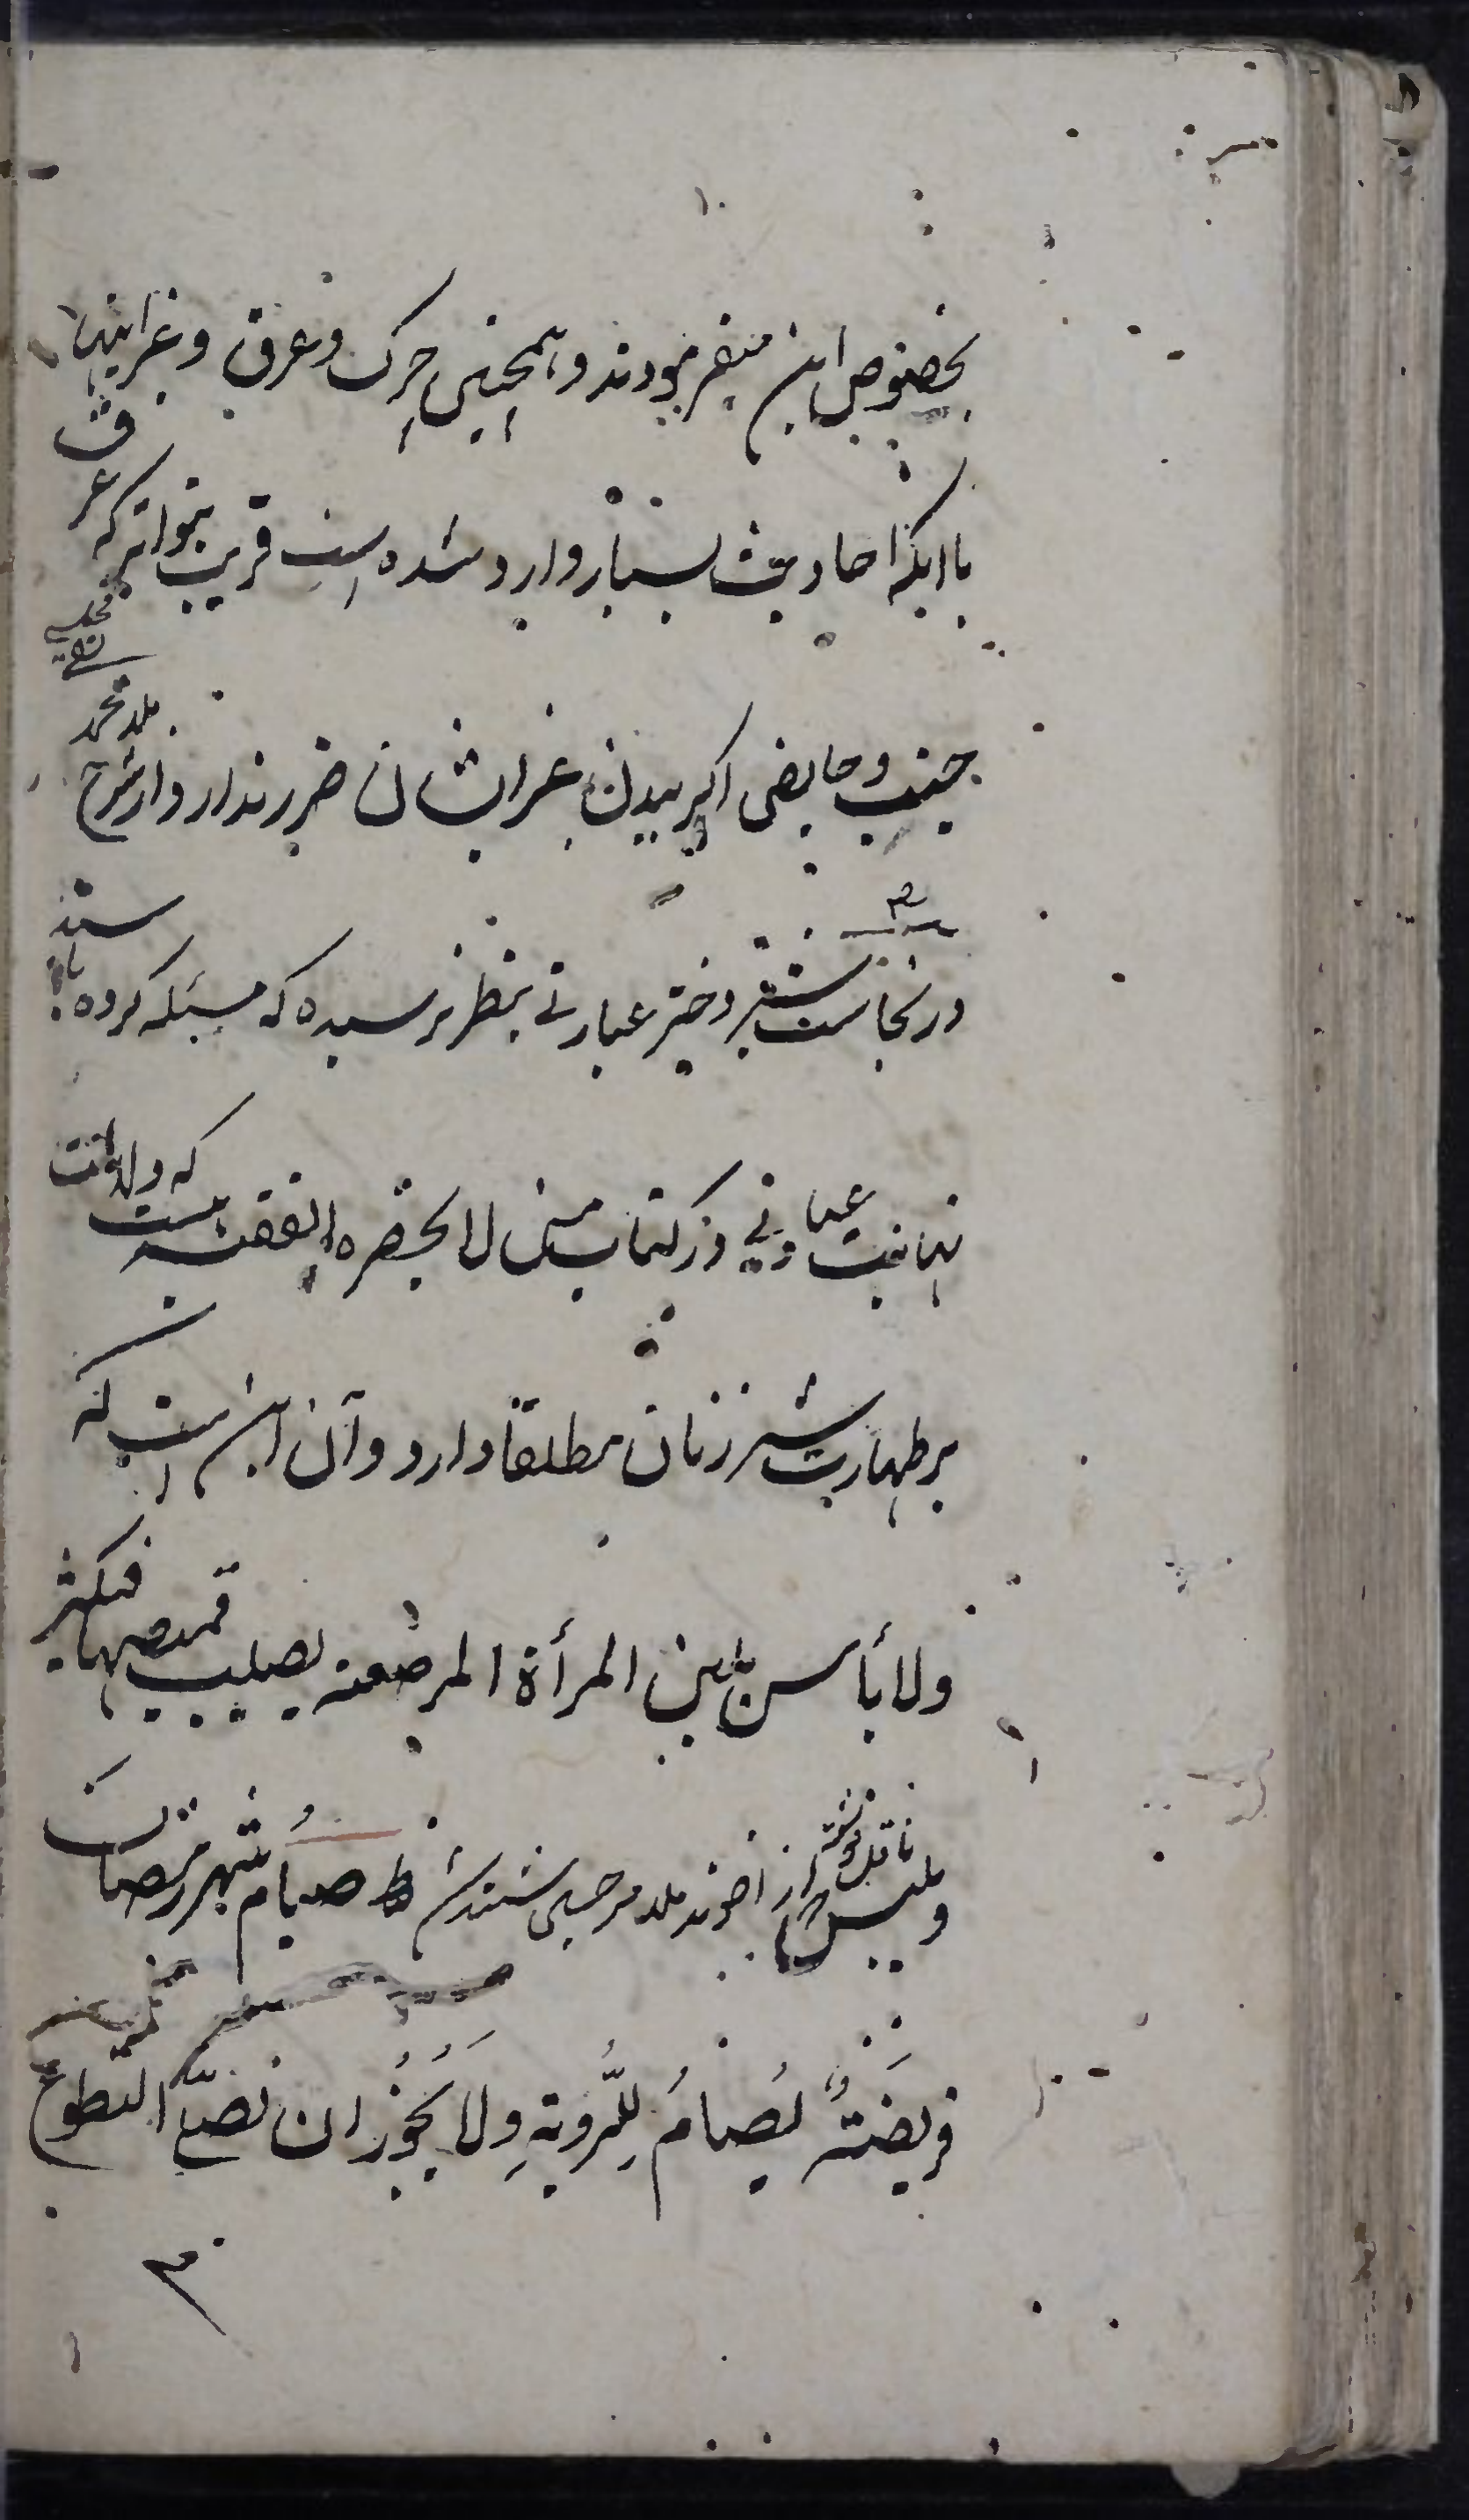 بخصوص این میفرمودند و همچنین چرک و عرق و غیر اینها
با اینکه احادیث بسیار وارد شده است قریب بتواتر که عرق
جنب و حایض اگر ببدن غیر ایشان ضرر ندارد از شرح
ملا محمد تقی
در نجاست شیر دختر عبارتی بنظر نرسیده که مسئله کرده باشند
نهایت عبارتی در کتاب من لا یحضره الفقیه هست که دلالت
بر طهارت شیر زنان مطلقا دارد و آن این است که
ولا بأس بلبن المرأة المرضعة یصیب قمیصها فیکثر
وییبس از آخوند ملا صیام شهر رمضان
فریضةٌ یُصامُ لِلرُّویةِ ولا یَجُوزُ ان التطوع